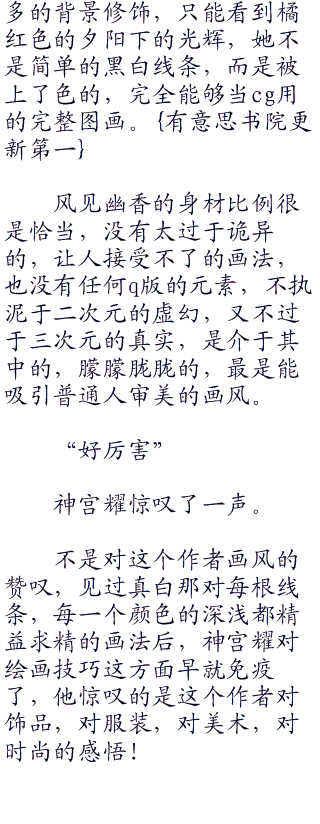 多的背景修饰，只能看到橘
红色的夕阳下的光辉，她不
是简单的黑白线条，而是被
上了色的，完全能够当cg用
的完整图画。{有意思书院更
新第一}
风见幽香的身材比例很
是恰当，没有太过于诡异
的，让人接受不了的画法，
也没有任何q版的元素，不执
泥于二次元的虚幻，又不过
于三次元的真实，是介于其
中的，朦朦胧胧的，最是能
吸引普通人审美的画风。
“好厉害”
神宫耀惊叹了一声。
不是对这个作者画风的
赞叹，见过真白那对每根线
条，每一个颜色的深浅都精
益求精的画法后，神宫耀对
绘画技巧这方面早就免疫
了，他惊叹的是这个作者对
饰品，对服装，对美术，对
时尚的感悟！